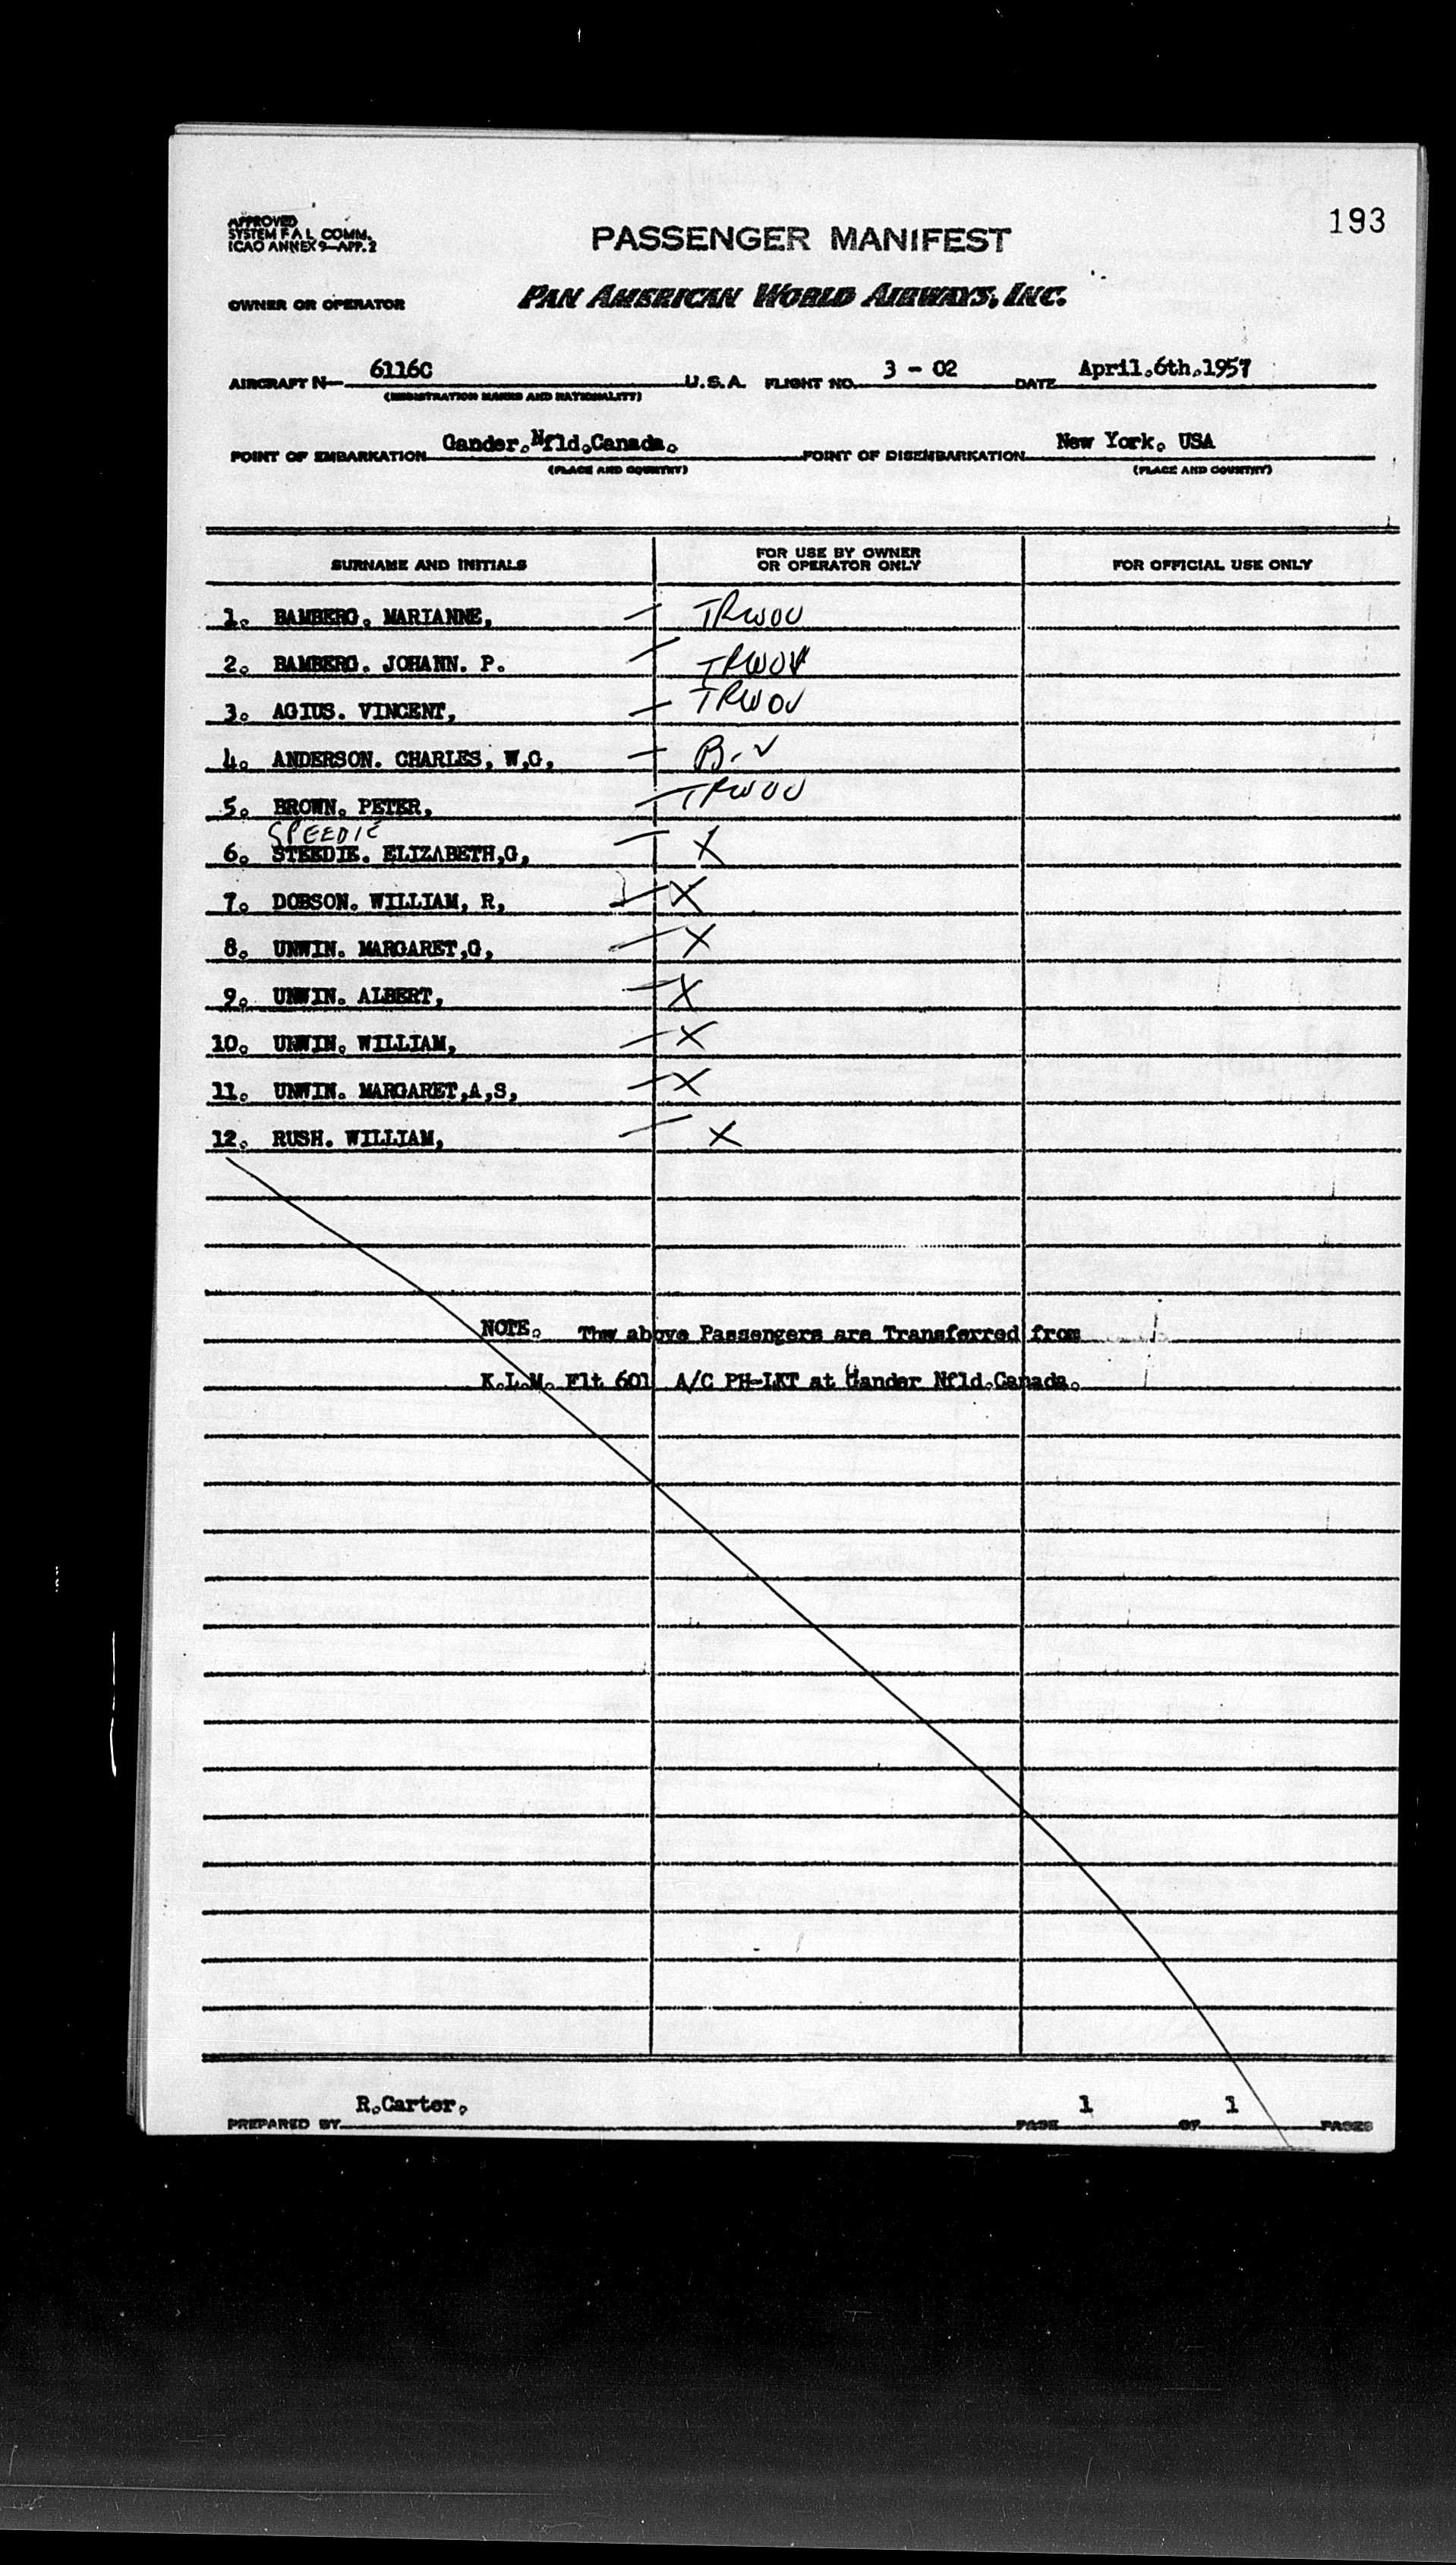 193
APPROVED
SYSTEM F A L COMM.
ICAO ANNEX 9—APP. 2
PASSENGER MANIFEST
OWNER OR OPERATOR PAN AMERICAN WORLD AIRWAYS, INC.
AIRCRAFT N— 6116C U.S.A. FLIGHT NO. 3 - 02 DATE April.6th.1957
(REGISTRATION MARKS AND NATIONALITY)
POINT OF EMBARKATION Gander.Nfld.Canada. POINT OF DISEMBARKATION New York. USA
(PLACE AND COUNTRY) (PLACE AND COUNTRY)
SURNAME AND INITIALS FOR USE BY OWNER OR OPERATOR ONLY FOR OFFICIAL USE ONLY
1. BAMBERG. MARIANNE, — TRWOV
2. BAMBERG. JOHANN. P. — TRWOV
3. AGIUS. VINCENT, — TRWOV
4. ANDERSON. CHARLES, W,G, — B.V
5. BROWN. PETER, — TRWOV
SPEEDIE
6. STEEDIE. ELIZABETH,G, — X
7. DOBSON. WILLIAM, R, — X
8. UNWIN. MARGARET,G, — X
9. UNWIN. ALBERT, — X
10. UNWIN. WILLIAM, — X
11. UNWIN. MARGARET,A,S, — X
12. RUSH. WILLIAM, — X
NOTE. Thw above Passengers are Transferred from
K.L.M. Flt 601 A/C PH-LKT at Gander Nfld.Canada.
PREPARED BY R.Carter. PAGE 1 OF 1 PAGES